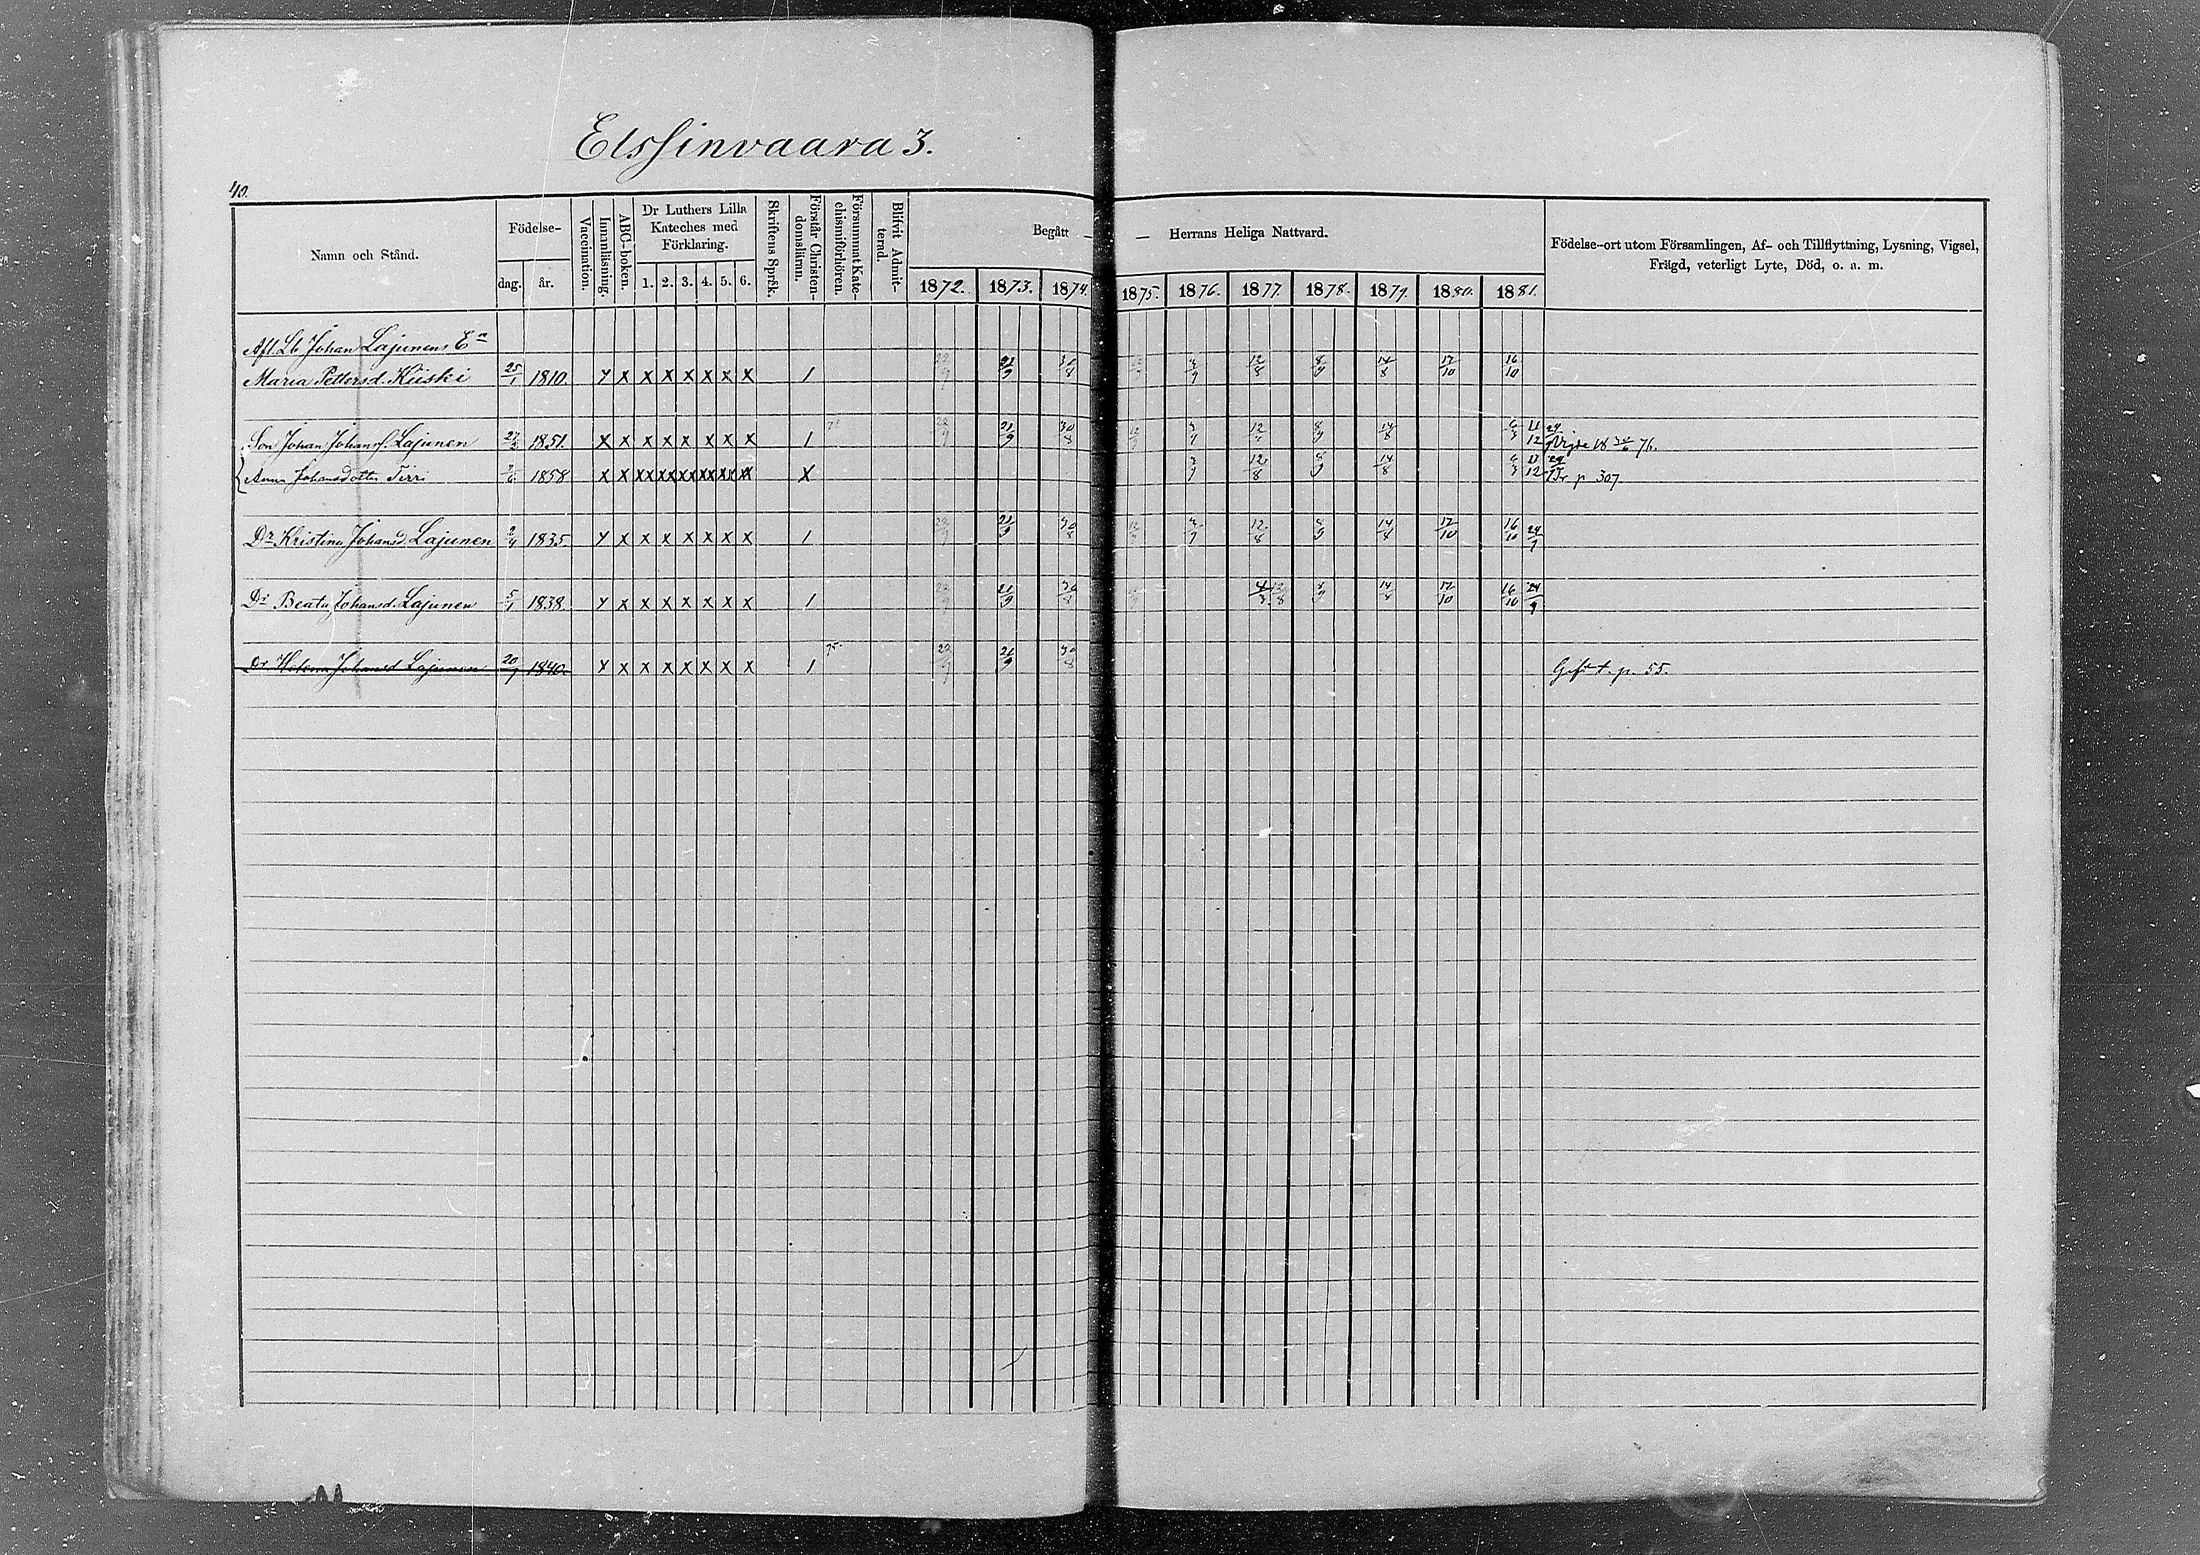 Elssinvaara 3.
40.
Namn och Stånd.
Födelse-
dag. år.
Vaccination.
Innanläsning.
ABC-boken.
Dr Luthers Lilla Kateches med Förklaring.
1. 2. 3. 4. 5. 6.
Skriftens Språk.
Förstår Christendomsläran.
Försummat Katechismiförhören.
Blifvit Admitterad.
Begått — — Herrans Heliga Nattvard.
1872. 1873. 1874. 1875. 1876. 1877. 1878. 1879. 1880. 1881.
Födelse-ort utom Församlingen, Af- och Tillflyttning, Lysning, Vigsel,
Frägd, veterligt Lyte, Död, o. a. m.
Afl. Lb Johan Lajunens En
Maria Pettersd. Kiiski 25/1 1810. x x x x x x x x 1 22/9 21/9 30/8 12/8 8/9 14/8 17/10 16/10
Son Johan Johans. Lajunen 1851. x x x x x x x x 1 22/9 21/9 30/8 12/9 8/9 14/8
Anna Johansdotter Tirri 1858 x x xx xx xx xx xx xx x 12/8 8/9 14/8 p 307
Dr Kristina Johansd. Lajunen 1835. x x x x x x x x 1 22/9 21/9 30/8 12/9 12/8 8/9 14/8 17/10 16/10 24/9
Dr Beata Johansd. Lajunen 5/1 1838. x x x x x x x x 1 22/9 21/9 30/8 14/8 17/10 16/10 24/9
Dr Helena Johansd Lajunen 1840. x x x x x x x x 1 75. 22/9 21/9 30/8 Gift t. p. 55.